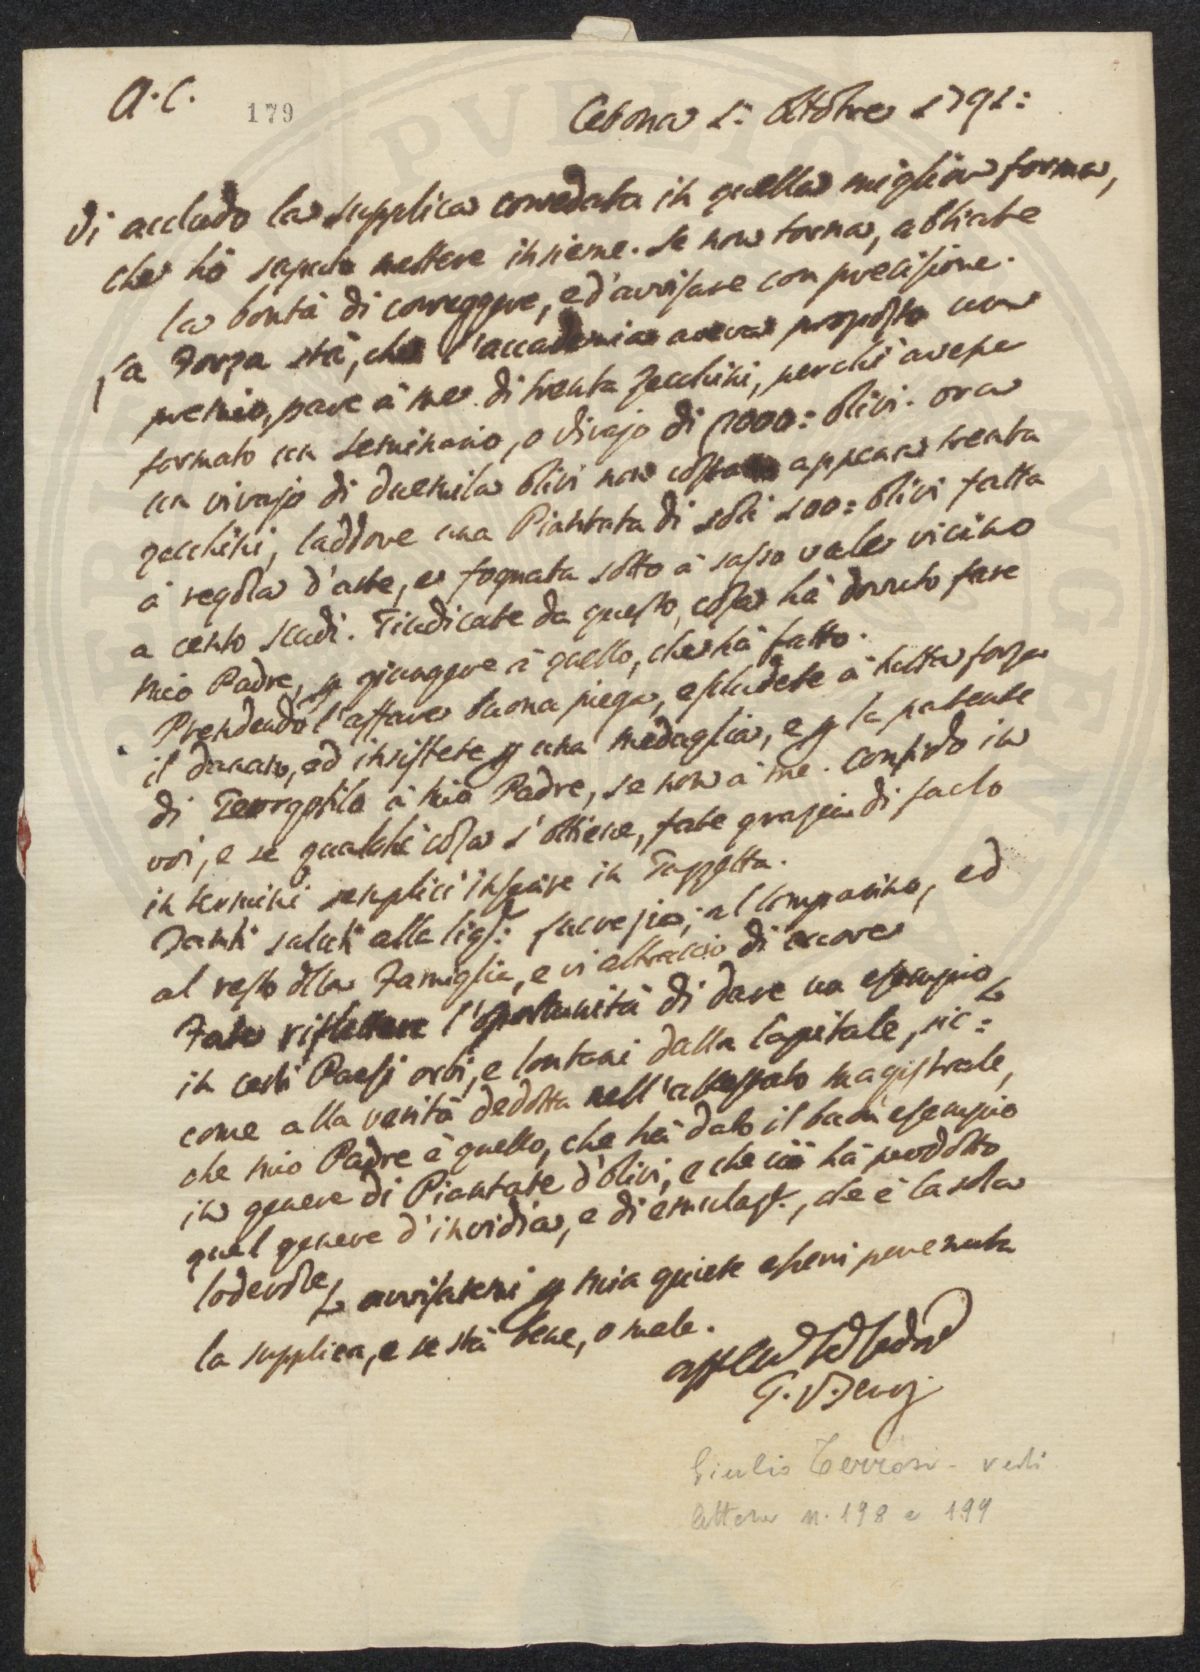 A. C.
179
Cetona 1: Ottobre 1791:
Vi accludo la supplica corredata in quella miglior forma,
che hò saputo mettere insieme. Se non torna, abbiate
la bontà di correggere, ed avvisare con precisione.
La Forza stà, che l'accademia aveva proposto un
premio, pare à me di trenta Zecchini, perchi avesse
formato un Seminario, o Vivajo di 2000: Olivi. Ora
un vivajo di duemila Olivi non costa appena trenta
zecchini, laddove una Piantata di soli 100: Olivi fatta
à regola d'arte, e fognata sotto à sasso vale vicino
a cento scudi. Giudicate da questo, cosa hà dovuto fare
mio Padre, p giungere à quello, che hà fatto.
Prendendo l'affare buona piega, escludete à tutta forza
il danaro, ed insistete p una medaglia, e p la patente
di Georgofilo à mio Padre, se non à me. Confido in
voi, e se qualche cosa s'ottiene, fate grazia di farlo
in termini semplici inserire in Gazzetta.
Tanti saluti alla Sig.: Lucrezia, al Comparino, ed
al resto della Famiglia, e vi abbraccio di cuore
Fate riflettere l'opportunità di dare un esempio
in certi Paesi orbi, e lontani dalla Capitale, sic=
come alla verità dedotta nell'attestato magistrale,
che mio Padre è quello, che hà dato il buon esempio
in genere di Piantate d'Olivi, e che ciò hà prodotto
quel genere d'invidia, e di emulaz.e, che è la sola
lodevole avvisatemi p mia quiete esservi pervenuta
la supplica, e se stà bene, o male.
G. Terrosi
Giulio Terrosi - vedi
lettere n. 198 e 199